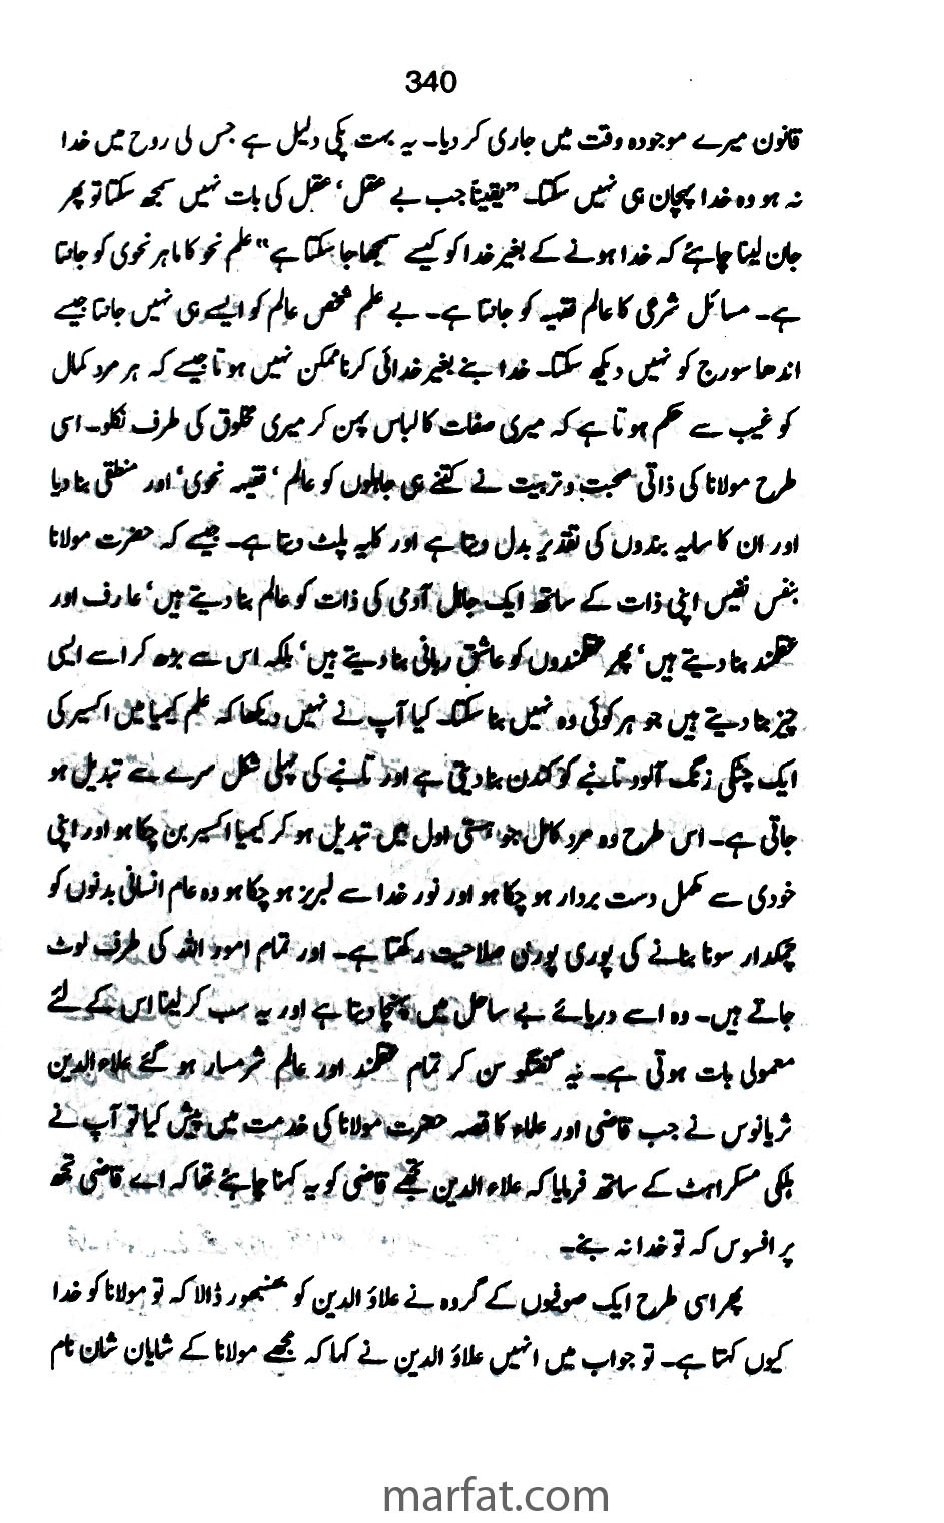 340
قانون میرے موجودہ وقت میں جاری کر دیا۔ یہ بہت پکی دلیل ہے جس کی روح میں خدا
نہ ہو وہ خدا پہچان ہی نہیں سکتا۔ "یقیناً جب بے عقل' عقل کی بات نہیں سمجھ سکتا تو پھر
جان لینا چاہئے کہ خدا ہونے کے بغیر خدا کو کیسے سمجھا جا سکتا ہے" علم نحو کا ماہر نحوی کو جانتا
ہے۔ مسائل شرعی کا عالم فقیہ کو جانتا ہے۔ بے علم شخص عالم کو ایسے ہی نہیں جانتا جیسے
اندھا سورج کو نہیں دیکھ سکتا۔ خدا بنے بغیر خدائی کرنا ممکن نہیں ہوتا جیسے کہ ہر مرد کمال
کو غیب سے حکم ہوتا ہے کہ میری صفات کا لباس پہن کر میری مخلوق کی طرف نکلو۔ اسی
طرح مولانا کی ذاتی صحبت و تربیت نے کتنے ہی جاہلوں کو عالم' فقیہ نحوی' اور منطقی بنا دیا
اور ان کا سایہ بندوں کی تقدیر بدل دیتا ہے اور کلیہ پلٹ دیتا ہے۔ جیسے کہ حضرت مولانا
بنفس نفیس اپنی ذات کے ساتھ ایک جاہل آدمی کی ذات کو عالم بنا دیتے ہیں' عارف اور
عقلمند بنا دیتے ہیں' پھر عقلمندوں کو عاشق ربانی بنا دیتے ہیں' بلکہ اس سے بڑھ کر اسے ایسی
چیز بنا دیتے ہیں جو ہر کوئی وہ نہیں بنا سکتا۔ کیا آپ نے نہیں دیکھا کہ علم کیمیا میں اکسیر کی
ایک چٹکی زنگ آلود تانبے کو کندن بنا دیتی ہے اور تانبے کی پہلی شکل سرے سے تبدیل ہو
جاتی ہے۔ اس طرح وہ مرد کامل جو ہستی اول میں تبدیل ہو کر کیمیا اکسیر بن چکا ہو اور اپنی
خودی سے مکمل دست بردار ہو چکا ہو اور نور خدا سے لبریز ہو چکا ہو وہ عام انسانی بدنوں کو
چمکدار سونا بنانے کی پوری پوری صلاحیت رکھتا ہے۔ اور تمام امور اللہ کی طرف لوٹ
جاتے ہیں۔ وہ اسے دریائے بے ساحل میں پہنچا دیتا ہے اور یہ سب کر لینا اس کے لئے
معمولی بات ہوتی ہے۔ یہ گفتگو سن کر تمام عقلمند اور عالم شرمسار ہو گئے علاء الدین
ثریانوس نے جب قاضی اور علاء کا قصہ حضرت مولانا کی خدمت میں پیش کیا تو آپ نے
ہلکی مسکراہٹ کے ساتھ فرمایا کہ علاء الدین تجھے قاضی کو یہ کہنا چاہئے تھا کہ اے قاضی تجھ
پر افسوس کہ تو خدا نہ بنے۔
پھر اسی طرح ایک صوفیوں کے گروہ نے علاؤ الدین کو جھنجھوڑ ڈالا کہ تو مولانا کو خدا
کیوں کہتا ہے۔ تو جواب میں انہیں علاؤ الدین نے کہا کہ مجھے مولانا کے شایان شان نام
marfat.com